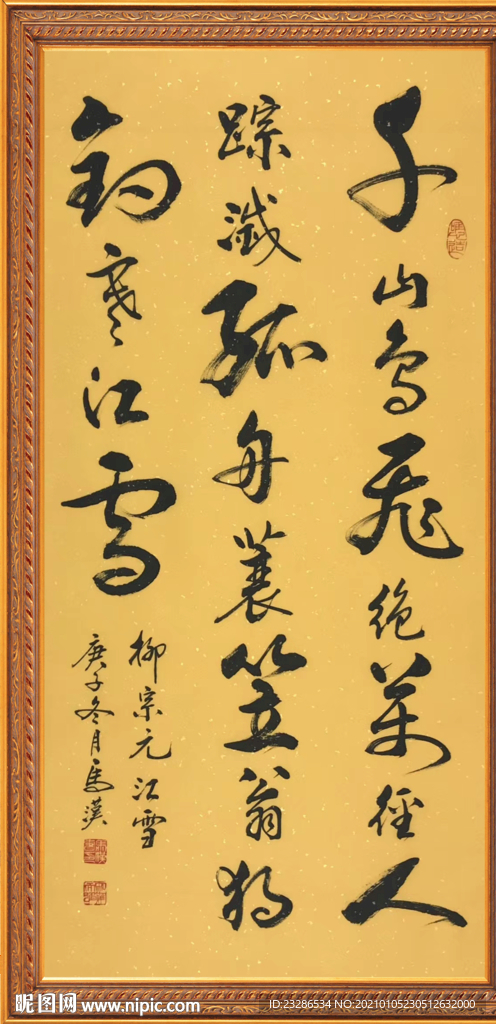 千山鸟飛绝萬徑人
踪滅孤舟蓑笠翁独
钓寒江雪
柳宗元江雪
庚子冬月馬漢
昵图网 www.nipic.com
ID:23286534 NO:20210105230512632000